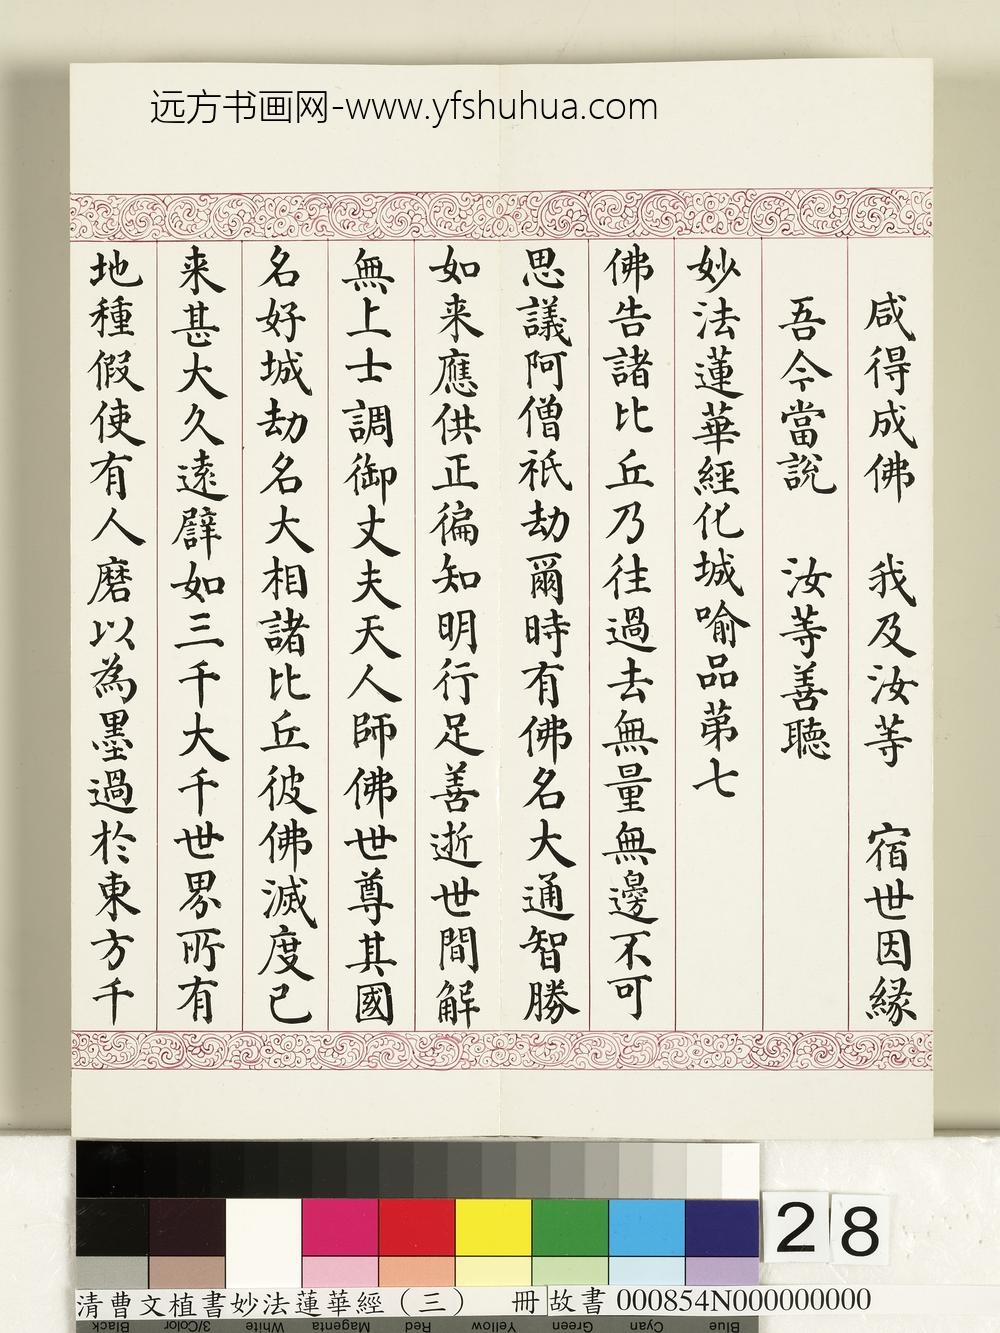 远方书画网-www.yfshuhua.com
咸得成佛　我及汝等　宿世因緣
吾今當說　汝等善聽
妙法蓮華經化城喻品苐七
佛告諸比丘乃往過去無量無邊不可
思議阿僧祇劫爾時有佛名大通智勝
如来應供正徧知明行足善逝世間解
無上士調御丈夫天人師佛世尊其國
名好城劫名大相諸比丘彼佛滅度已
来甚大久遠譬如三千大千世界所有
地種假使有人磨以為墨過於東方千
28
清曹文植書妙法蓮華經（三）　冊 故書 000854N000000000
Black 3/Color White Magenta Red Yellow Green Cyan Blue